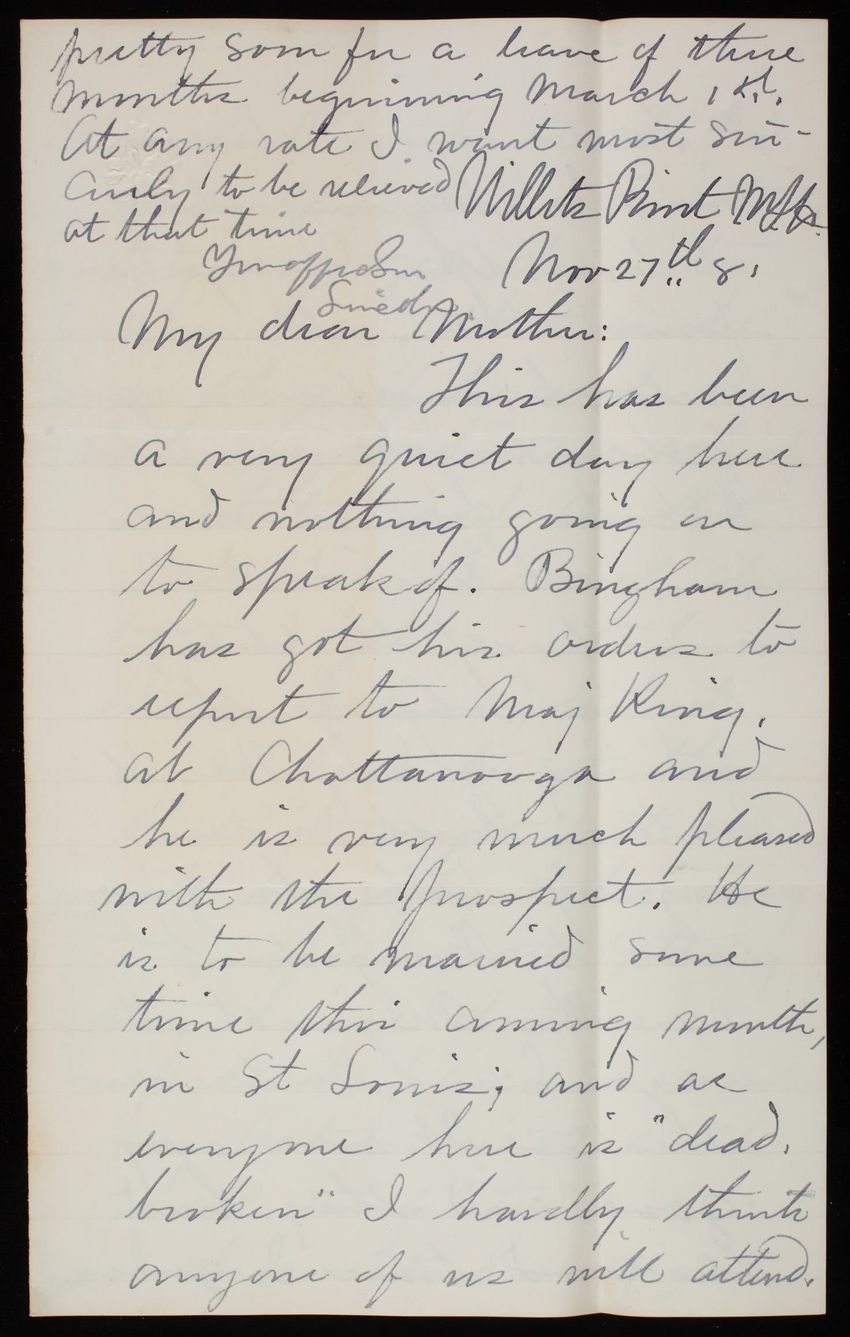 pretty soon for a leave of three
months beginning March 1st.
At any rate I want most sin-
cerely to be relieved
at that time
Your aff. Son
Willets Point N.Y.
Nov 27th 81
My dear Mother:
This has been
a very quiet day here
and nothing going on
to speak of. Bingham
has got his orders to
report to Maj King.
at Chattanooga and
he is very much pleased
with the prospect. He
is to be married some
time this coming month,
in St Louis; and as
everyone here is "dead.
broken" I hardly think
anyone of us will attend.